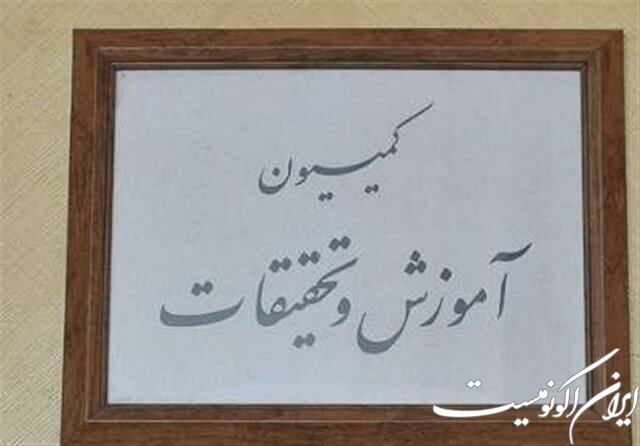 کمیسیون
آموزش و تحقیقات
ایران اکونومیست